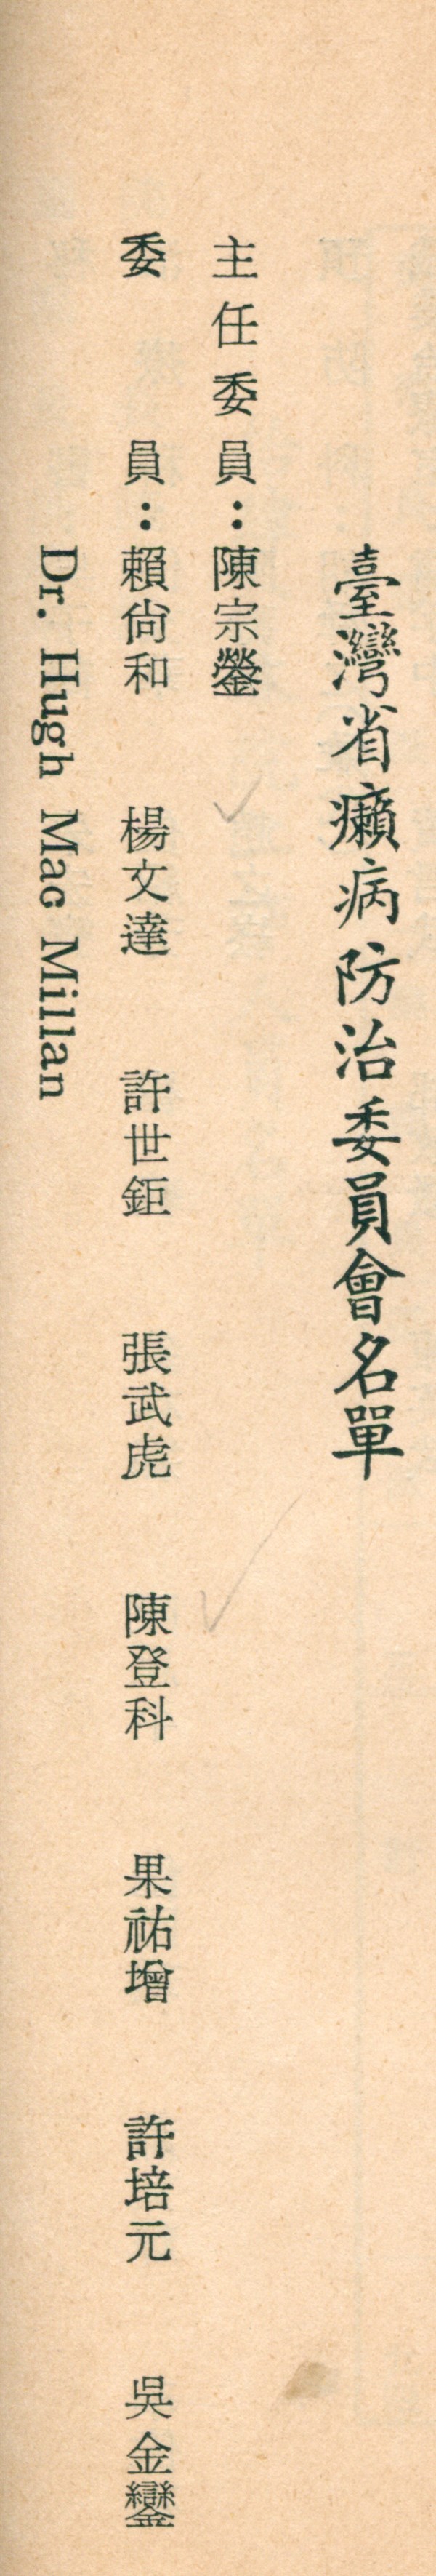 臺灣省癩病防治委員會名單
主任委員：陳宗鎣
委　　員：賴尙和　楊文達　許世鉅　張武虎　陳登科　果祐增　許培元　吳金鑾
Dr. Hugh Mac Millan